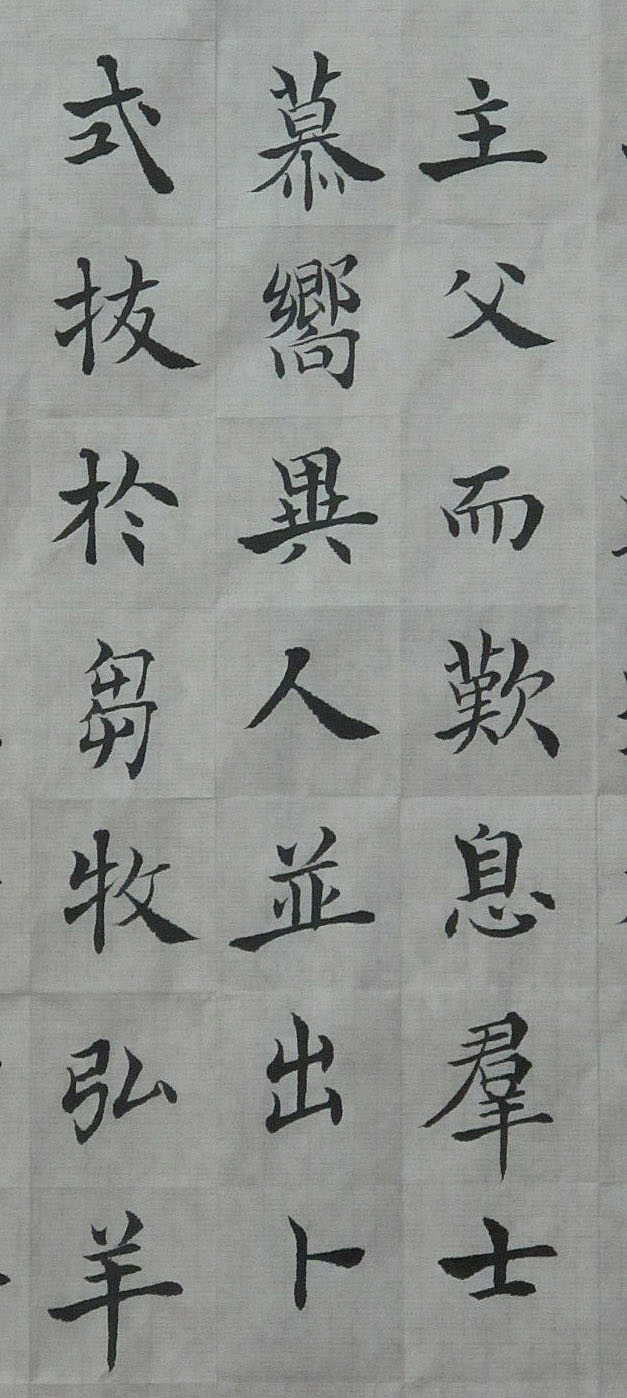 主父而歎息羣士
慕嚮異人並出卜
式拔於芻牧弘羊